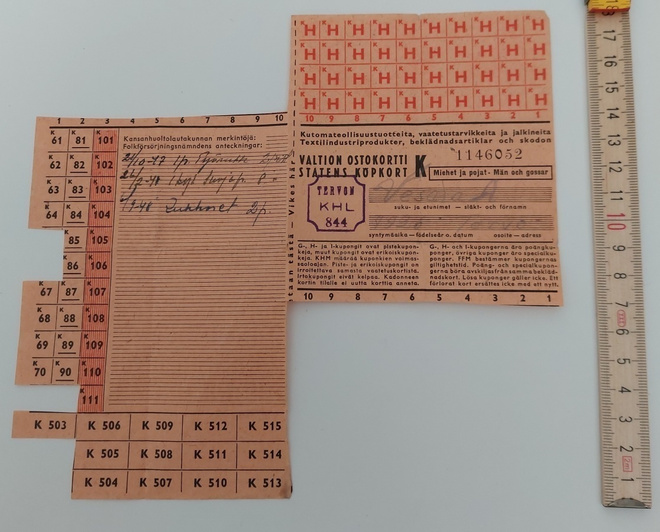 K H K H K H K H K H K H K H K H K H K H
K H K H K H K H K H K H K H K H K H K H
K H K H K H K H K H K H K H K H K H K H
K H K H K H K H K H K H K H K H K H K H
10 9 8 7 6 5 4 3 2 1
Kutomateollisuustuotteita, vaatetustarvikkeita ja jalkineita
Textilindustriprodukter, beklädnadsartiklar och skodon
VALTION OSTOKORTTI
STATENS KÖPKORT K
1146052
Miehet ja pojat - Män och gossar
TERVON
KHL
844
suku- ja etunimet — släkt- och förnamn
syntymäaika — födelseår o. datum osoite — adress
G-, H- ja I-kupongit ovat pistekupon-
keja, muut kupongit ovat erikoiskupon-
keja. KHM määrää kuponkien voimas-
saoloajan. Piste- ja erikoiskupongit on
irroitettava samasta vaatetuskortista.
Irtokupongit eivät kelpaa. Kadonneen
kortin tilalle ei uutta korttia anneta.
G-, H- och I-kupongerna äro poängku-
ponger, övriga kuponger äro specialku-
ponger. FFM bestämmer kupongernas
giltighetstid. Poäng- och specialkupon-
gerna böra avskiljas från samma bekläd-
nadskort. Lösa kuponger gälla icke. Ett
förlorat kort ersättes icke med ett nytt.
10 9 8 7 6 5 4 3 2 1
taan tästä — Vikes här
1 2 3 4 5 6 7 8 9 10
K 61 K 81 K 101
K 62 K 82 K 102
K 63 K 83 K 103
K 64 K 84 K 104
K 85 K 105
K 86 K 106
K 67 K 87 K 107
K 68 K 88 K 108
K 69 K 89 K 109
K 70 K 90 K 110
K 111
Kansanhuoltolautakunnan merkintöjä:
Folkförsörjningsnämndens anteckningar:
K 503 K 506 K 509 K 512 K 515
K 505 K 508 K 511 K 514
K 504 K 507 K 510 K 513
17
16
15
14
13
12
11
10
9
8
7
6
5
4
3
2
1